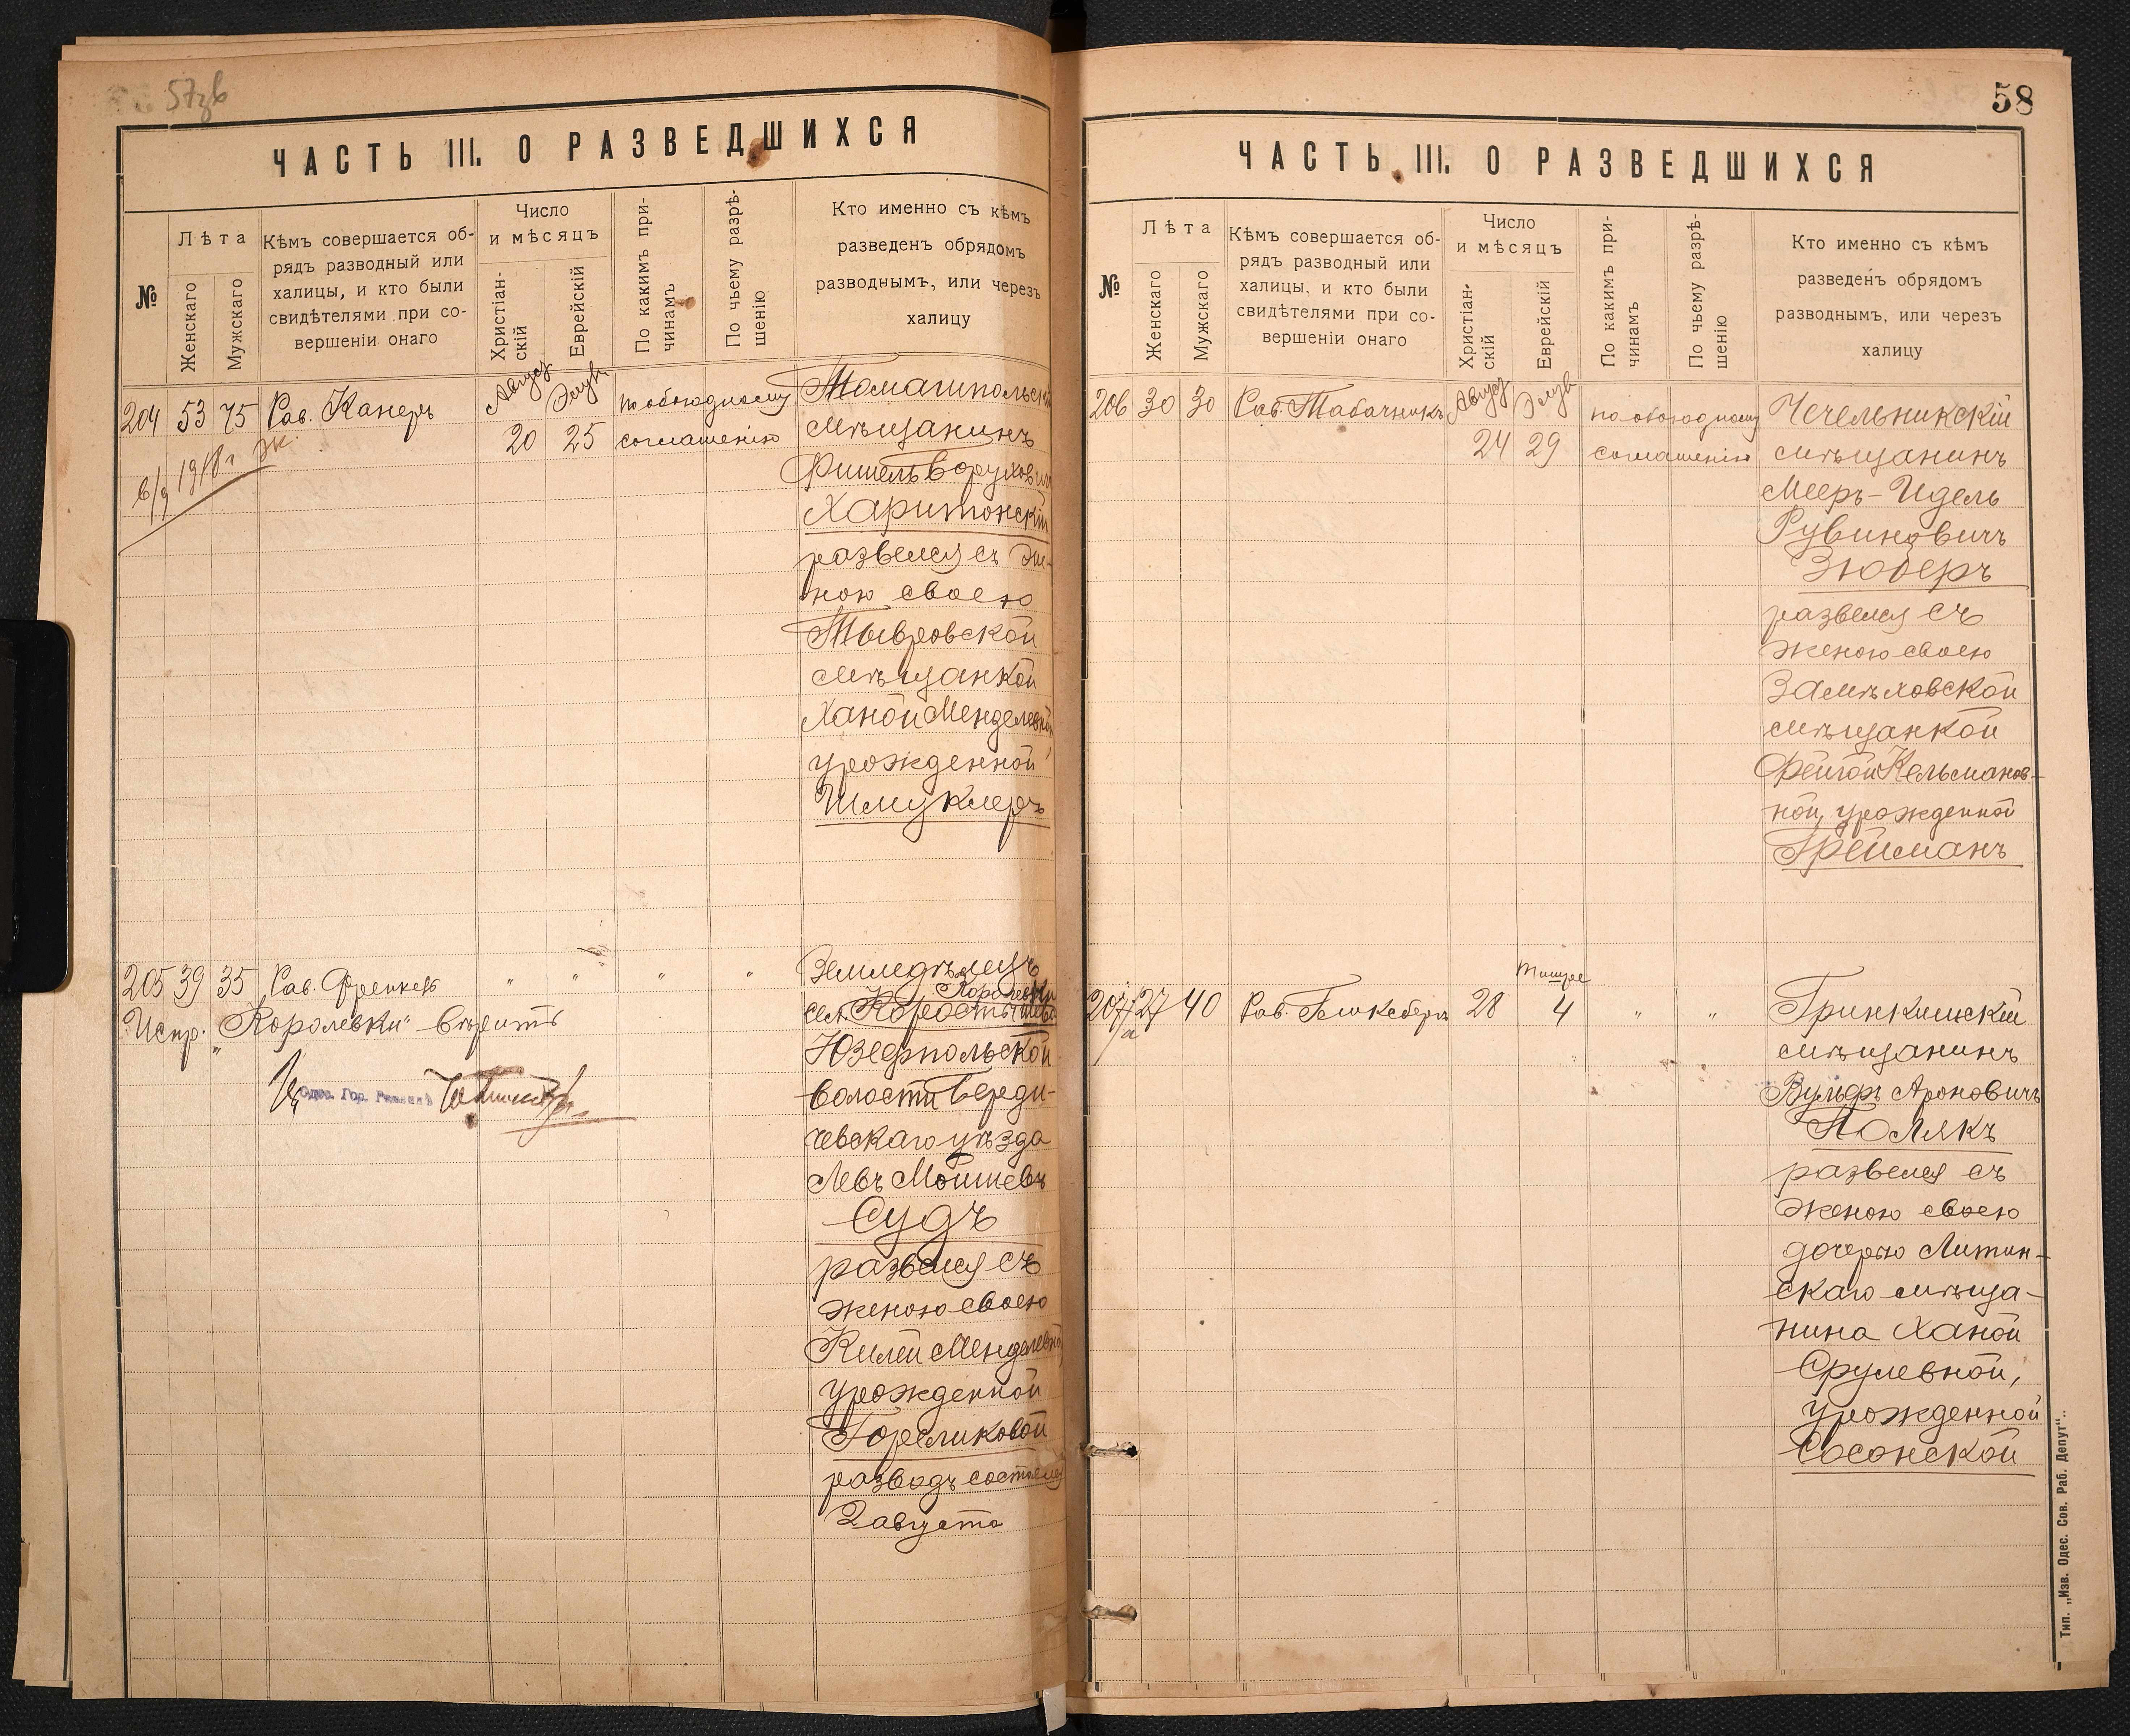 57зв
ЧАСТЬ III. О РАЗВЕДШИХСЯ
№
Лѣта
Женскаго
Мужскаго
Кѣмъ совершается об-
рядъ разводный или
халицы, и кто были
свидѣтелями при со-
вершеніи онаго
Число
и мѣсяцъ
Христіан-
скій
Еврейскій
По какимъ при-
чинамъ
По чьему разрѣ-
шенію
Кто именно съ кѣмъ
разведенъ обрядомъ
разводнымъ, или черезъ
халицу
204 53 75 Рав. Канеръ Август 20 Элулъ 25 по обоюдному
соглашенію
1918 г
Томашпольскій
мѣщанинъ
Фишель Боруховичъ
Харитонскій
развелся съ же-
ною своею
Тывровской
мѣщанкой
Ханой Менделевной,
урожденной
Шмуклеръ
205 39 35 Рав. Френкель " " " "
Испр. „Королевки" вѣрить
Одес. Гор. Раввинъ
Земледѣлецъ
Королевки
сел.
Юзефпольской
волости Берди-
чевскаго уѣзда
Левъ Мошневъ
Судъ
развелся съ
женою своею
Килей Менделевной,
урожденной
Гореликовой
разводъ состоялся
2 августа
58
ЧАСТЬ III. О РАЗВЕДШИХСЯ
№
Лѣта
Женскаго
Мужскаго
Кѣмъ совершается об-
рядъ разводный или
халицы, и кто были
свидѣтелями при со-
вершеніи онаго
Число
и мѣсяцъ
Христіан-
скій
Еврейскій
По какимъ при-
чинамъ
По чьему разрѣ-
шенію
Кто именно съ кѣмъ
разведенъ обрядомъ
разводнымъ, или черезъ
халицу
206 30 30 Рав. Табачникъ Август 24 Элулъ 29 по обоюдному
соглашенію
Чечельникскій
мѣщанинъ
Мееръ-Идель
Рувиновичъ
Зюберъ
развелся съ
женою своею
Замѣховской
мѣщанкой
Фейгой Кельманов-
ной, урожденной
Грейманъ
207 27 40 Рав. 28 Тишре 4 " "
Гринкишскій
мѣщанинъ
Вульфъ Ароновичъ
Полякъ
развелся съ
женою своею
дочерью Литин-
скаго мѣща-
нина Ханой
Срулевной,
урожденной
Сосонской
Тип. „Изв. Одес. Сов. Раб. Депут".